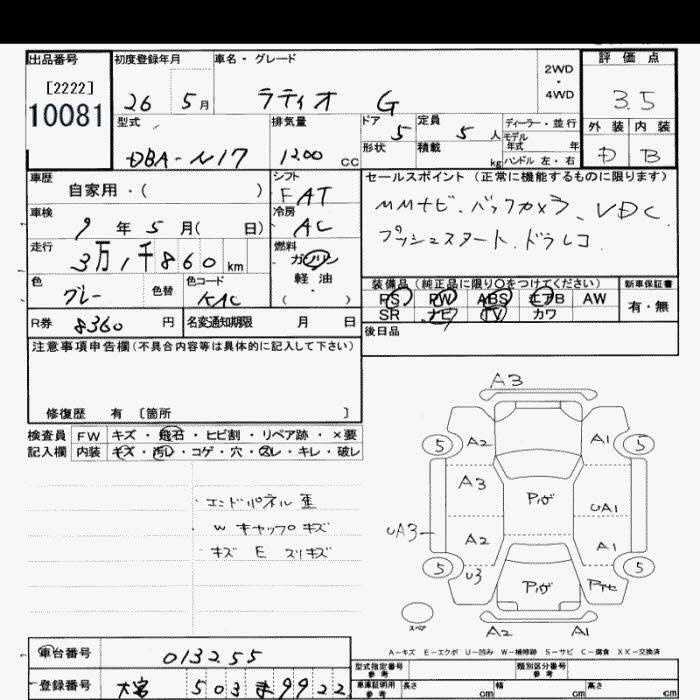 出品番号
[2222]
10081
初度登録年月
26 5月
車名・グレード
ラティオ G
2WD
・
4WD
評価点
3.5
外装 内装
D B
型式
DBA-N17
排気量
1200 CC
ドア
5
定員
5 人
形状
積載
kg
ディーラー・並行
モデル
年式 年
ハンドル 左・右
車歴
自家用・( )
シフト
FAT
車検
9年5月( 日)
冷房
AC
走行
3万1千860km
燃料
ガソリン
軽油
( ・ )
色
グレー
色替
色コード
KAC
R券 8360 円
名変通知期限 月 日
セールスポイント (正常に機能するものに限ります)
MMナビ.バックカメラ.VDC
プッシュスタート.ドラレコ
装備品 (純正品に限り〇をつけてください)
PS PW ABS エアB AW
SR ナビ TV カワ
新車保証書
有・無
後日品
注意事項申告欄 (不具合内容等は具体的に記入して下さい)
修復歴 有 〔箇所 〕
検査員
記入欄
FW キズ・飛石・ヒビ割・リペア跡・×要
内装 キズ・汚レ・コゲ・穴・スレ・キレ・破レ
・エンドパネル歪
・W キャップキズ
・キズ E スリキズ
A3
5 A2 A1 5
A3 Pハゲ UA1
UA3 A2 A1
5 U3 Pハゲ 5
スペア
A2 A1
A-キズ E-エクボ U-凹み W-補修跡 S-サビ C-腐食 XX-交換済
車台番号 013255
登録番号 大宮 503 ま 9922
型式指定番号
参考
類別区分番号
参考
車庫証明用
参考
長さ cm
幅 cm
高さ cm